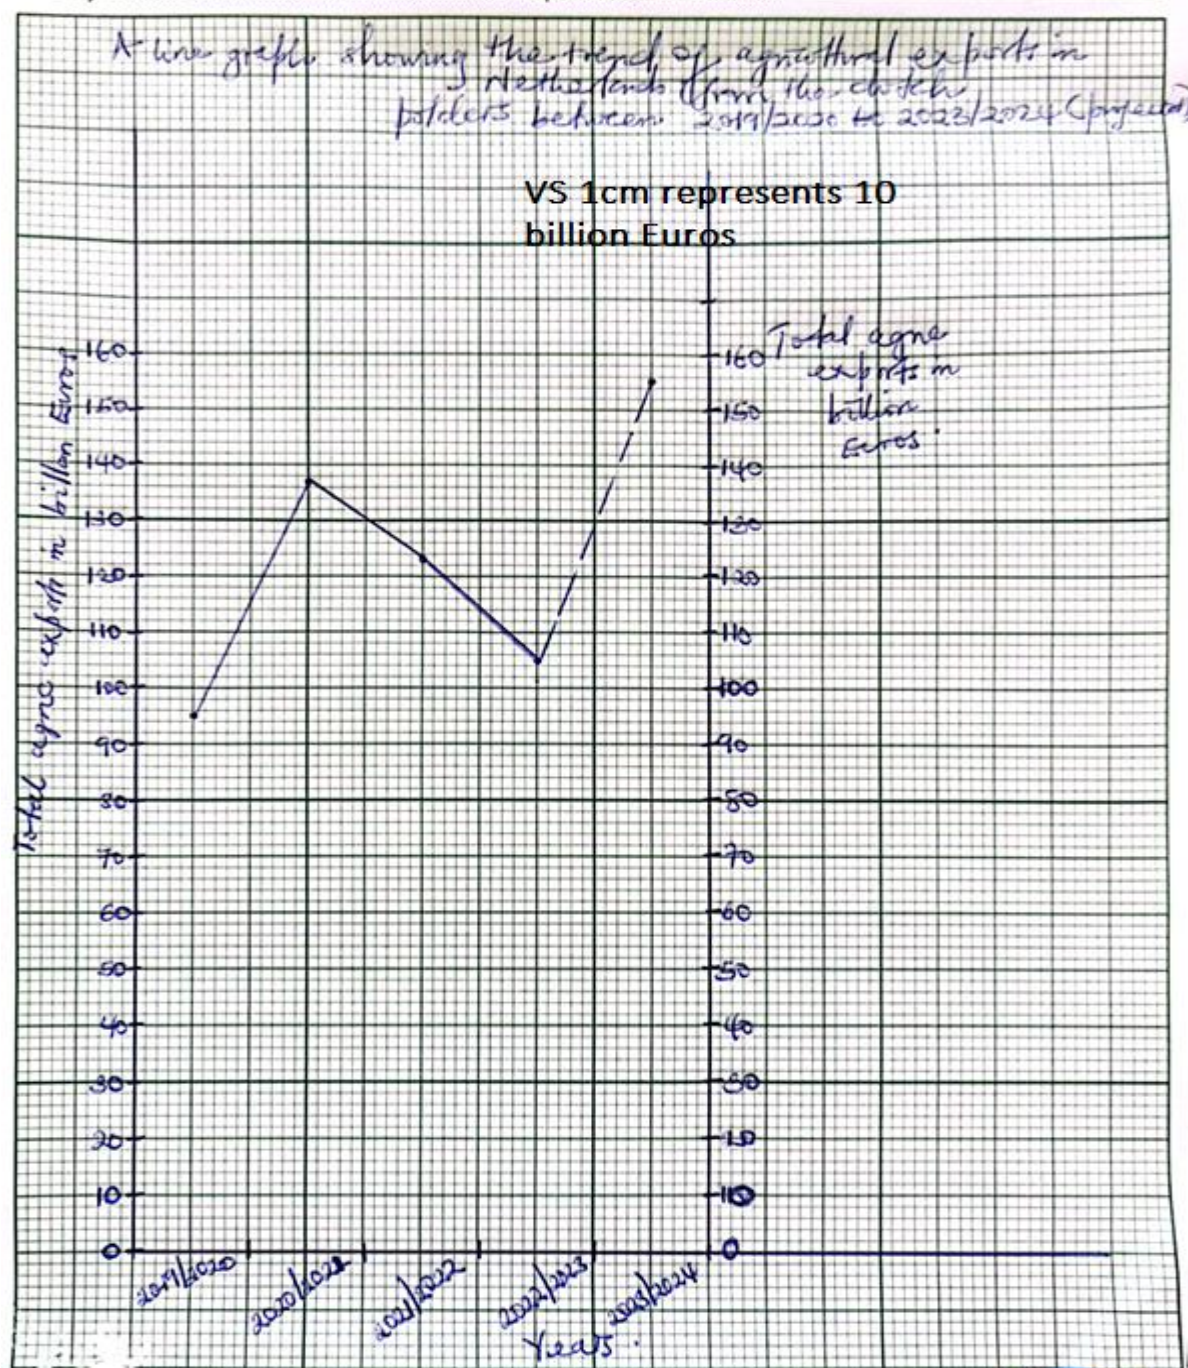 A line graph showing the trend of agricultural exports in
Netherlands from the dutch
polders between 2019/2020 to 2023/2024 (projected)
VS 1cm represents 10
billion Euros
Total agric exports in billion Euros
160
150
140
130
120
110
100
90
80
70
60
50
40
30
20
10
0
Total agric
exports in
billion
Euros.
160
150
140
130
120
110
100
90
80
70
60
50
40
30
10
0
2019/2020
2020/2021
2021/2022
2022/2023
2023/2024
Years.